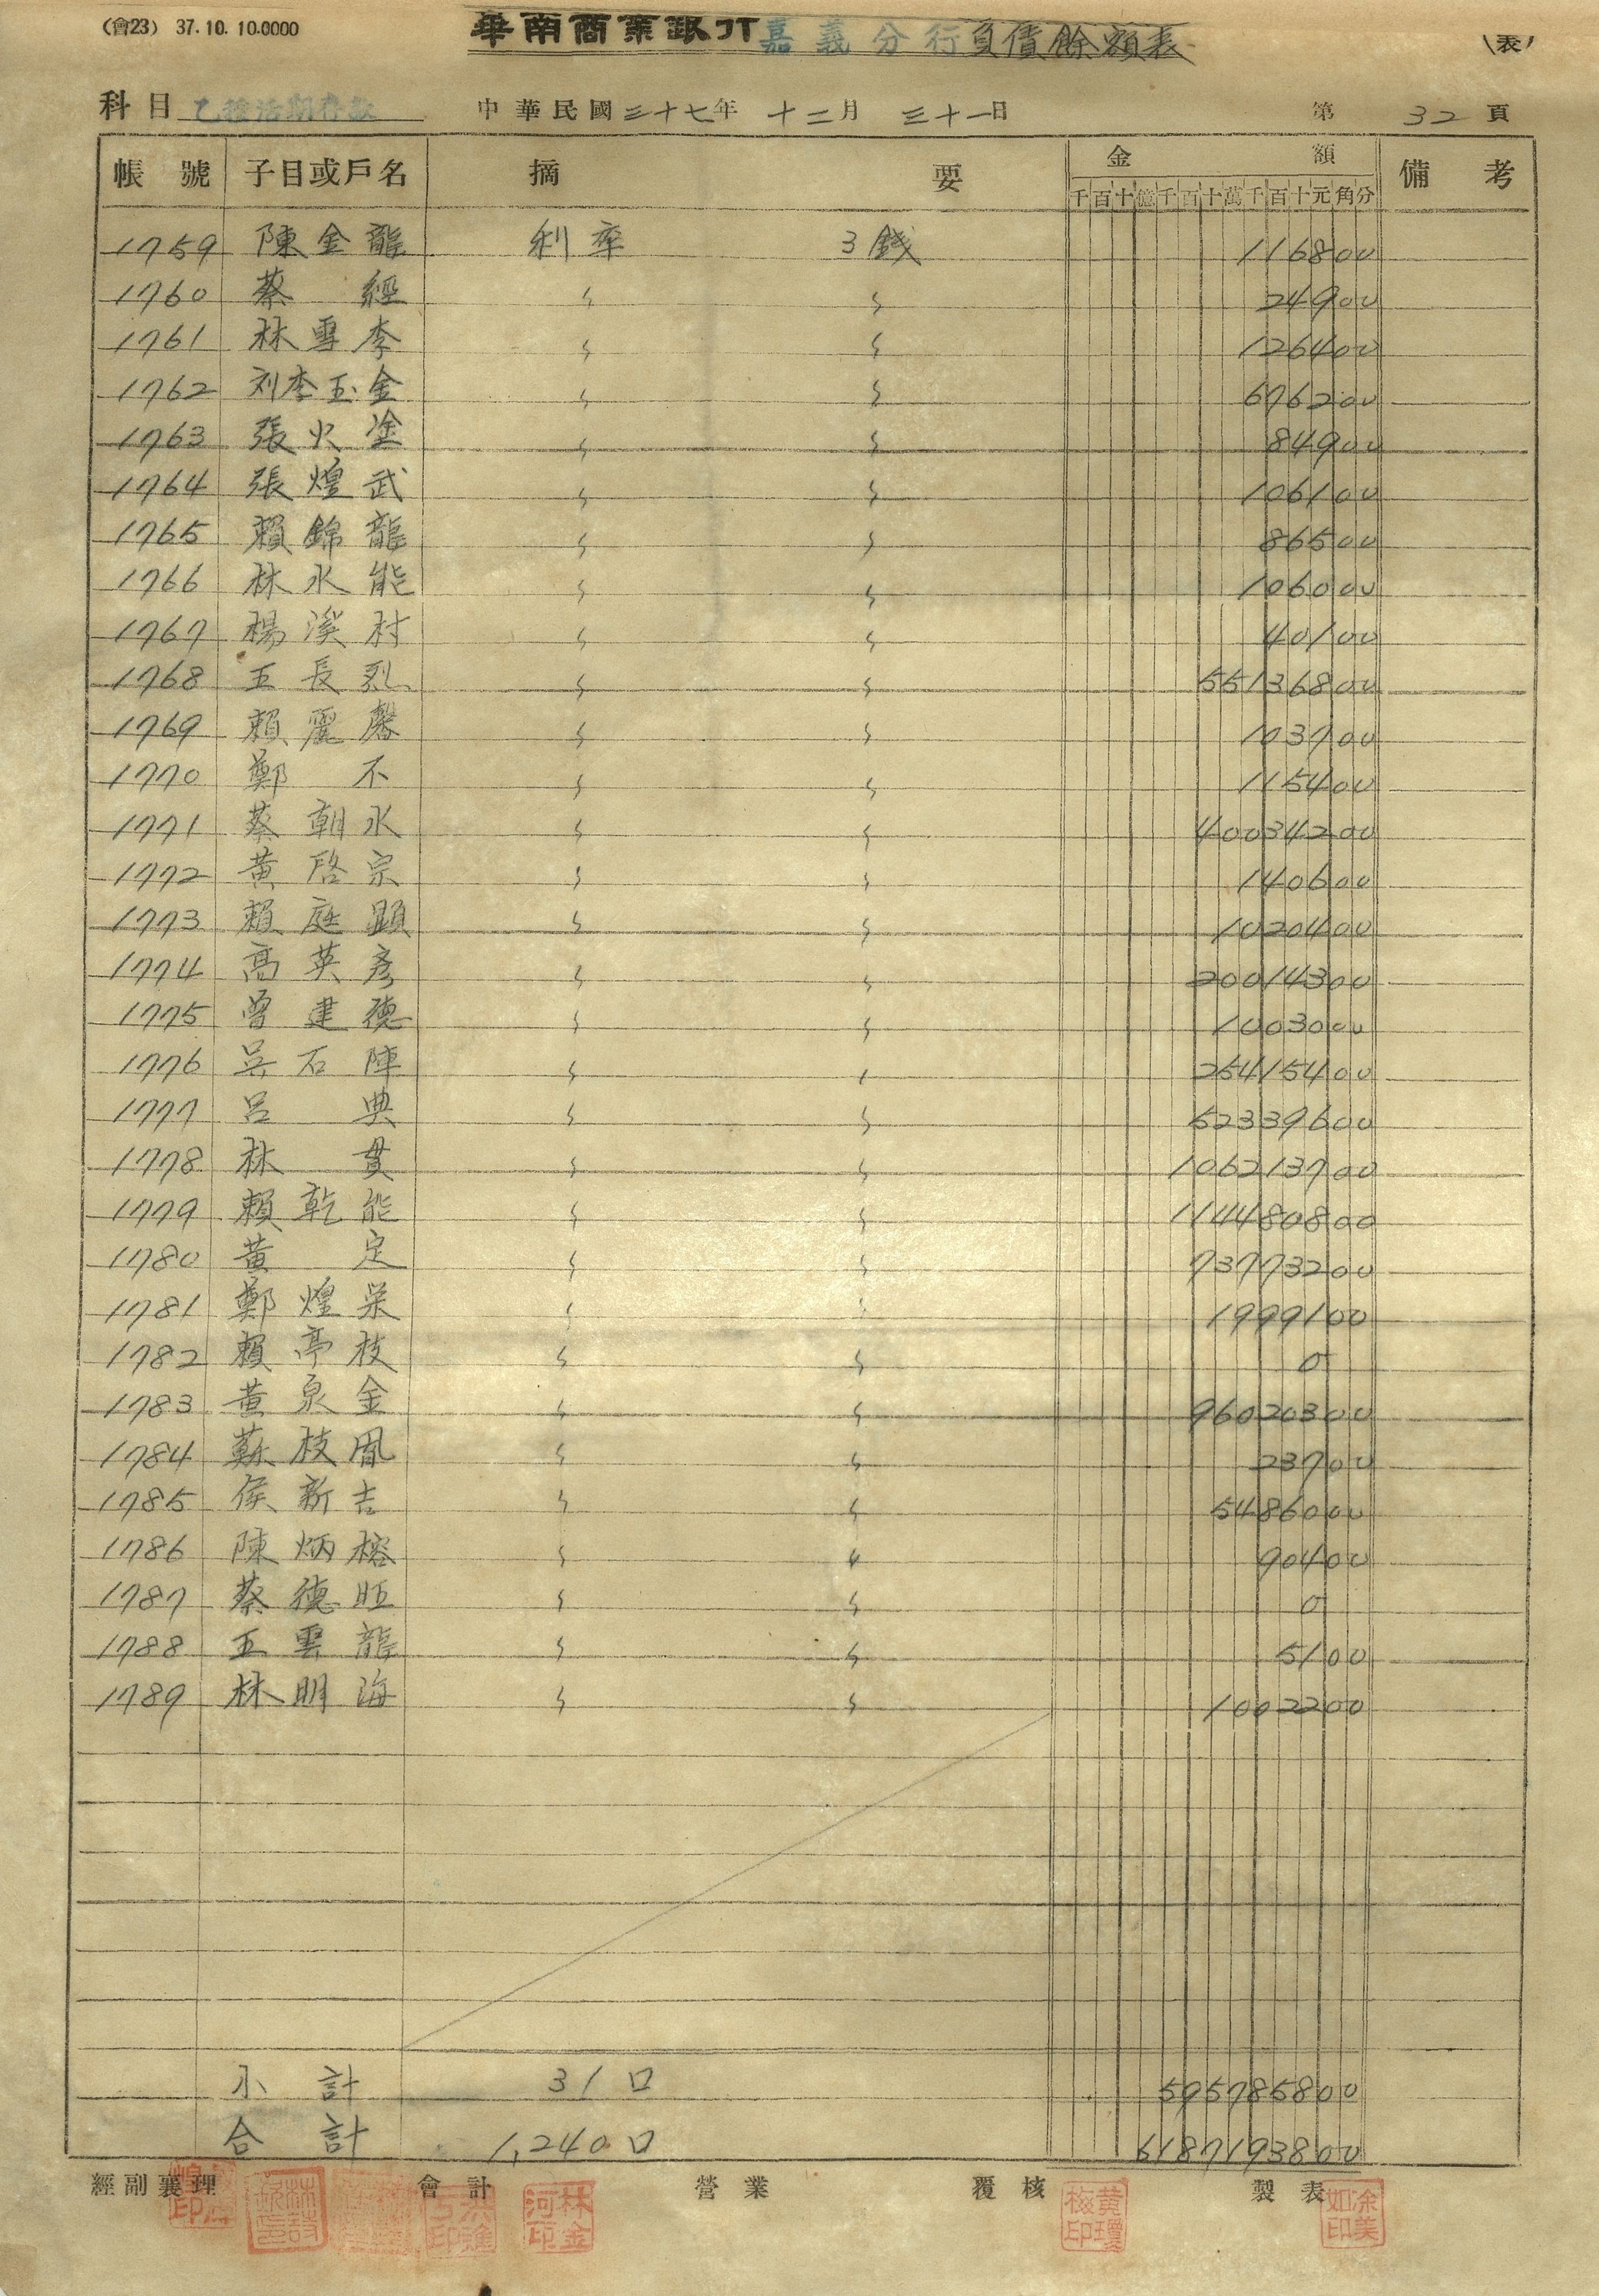 (會23) 37.10.10.0000
華南商業銀行嘉義分行負債餘額表
(表)
科目 乙種活期存款 中華民國三十七年 十二月 三十一日 第 32 頁
帳號 子目或戶名 摘要 金額 備考
千百十億千百十萬千百十元角分
1759 陳金龍 利率 3錢 116800
1760 蔡經 〃 〃 24900
1761 林雪李 〃 〃 126400
1762 刘李玉金 〃 〃 676200
1763 張火塗 〃 〃 84900
1764 張煌武 〃 〃 106100
1765 賴錦龍 〃 〃 86500
1766 林水能 〃 〃 106000
1767 楊溪村 〃 〃 40100
1768 王長烈 〃 〃 55136800
1769 賴麗馨 〃 〃 103700
1770 鄭不 〃 〃 115400
1771 蔡朝水 〃 〃 40034200
1772 黃啓宗 〃 〃 140600
1773 賴庭顕 〃 〃 1020400
1774 高英彥 〃 〃 20014300
1775 曾建德 〃 〃 1003000
1776 吳石陣 〃 〃 25415400
1777 呂典 〃 〃 52339600
1778 林貫 〃 〃 106213700
1779 賴乾能 〃 〃 114480800
1780 黃定 〃 〃 73773200
1781 鄭煌栄 〃 〃 1999100
1782 賴亭枝 〃 〃 0
1783 黃泉金 〃 〃 96020300
1784 蘇枝鳳 〃 〃 23700
1785 侯新吉 〃 〃 5486000
1786 陳炳榕 〃 〃 90400
1787 蔡德旺 〃 〃 0
1788 王雲龍 〃 〃 5100
1789 林明海 〃 〃 1002200
小計 31口 595785800
合計 1,240口 6187193800
經副襄理 會計 營業 覆核 製表
林金河印
黃瓊梅印
涂美如印